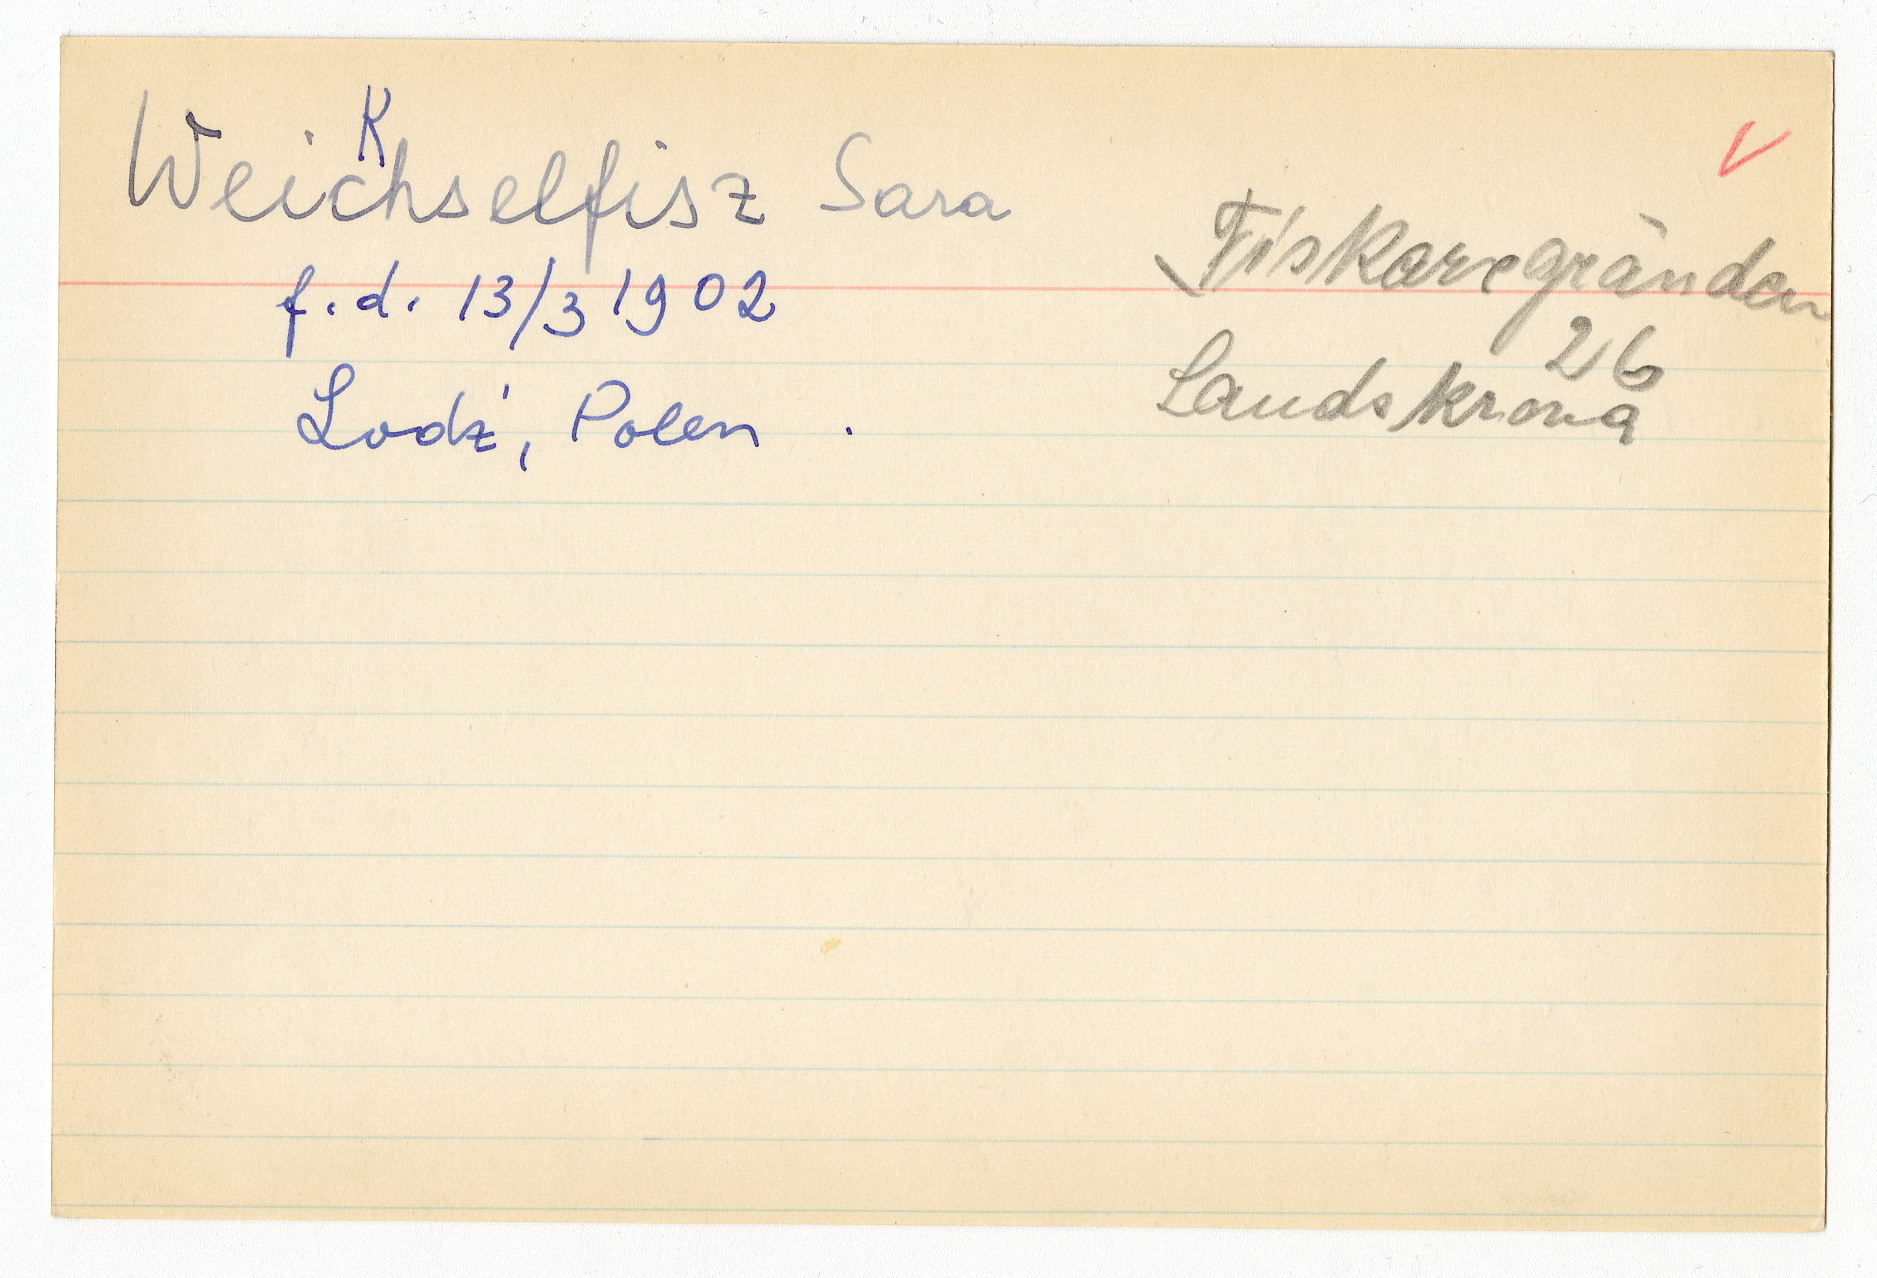 K
Weichselfisz Sara
f.d. 13/3 1902
Lodź, Polen.
Fiskaregränden
26
Landskrona